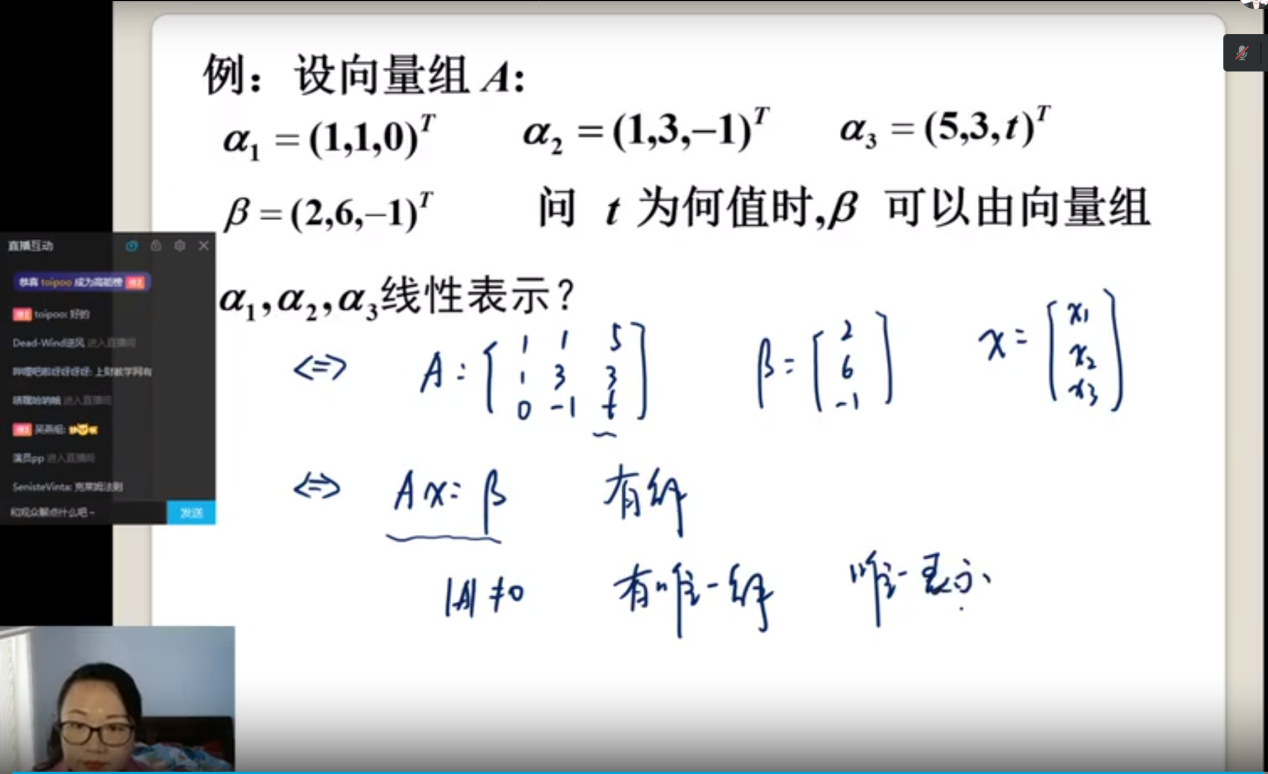 例：设向量组 A:
α₁ = (1,1,0)ᵀ α₂ = (1,3,−1)ᵀ α₃ = (5,3,t)ᵀ
β = (2,6,−1)ᵀ 问 t 为何值时,β 可以由向量组
α₁,α₂,α₃线性表示?
⇔ A = [1 1 5
1 3 3
0 -1 t] β = [2
6
-1] x = [x₁
x₂
x₃]
⇔ Ax = β 有解
|A| ≠ 0 有唯一解 唯一表示
直播互动
恭喜 toipoo 成为高能榜
toipoo: 好的
Dead-Wind逆风 进入直播间
上财教学网有
进入直播间
吴燕昭:
演员pp 进入直播间
SenisteVinta: 克莱姆法则
和观众聊点什么吧~ 发送